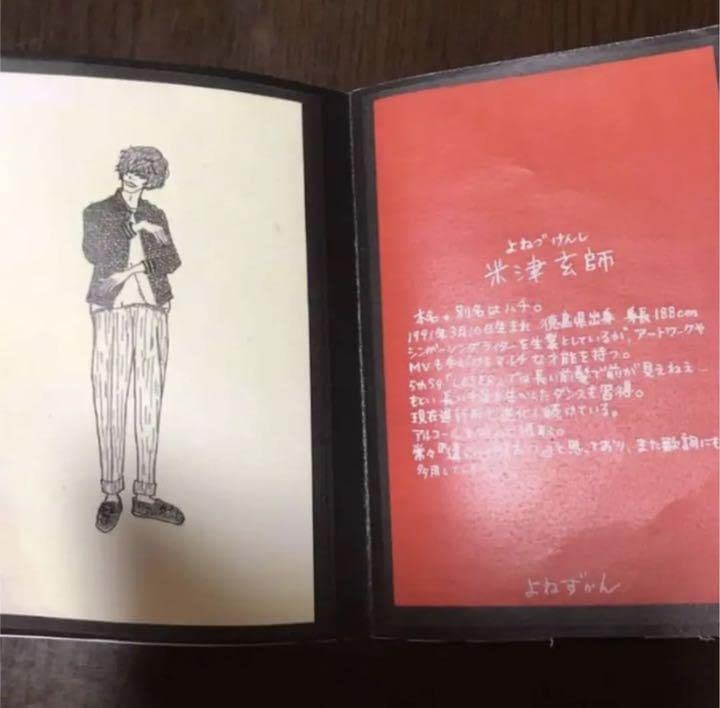 よねづけんし
米津玄師
本名。別名はハチ。
1991年3月10日生まれ 徳島県出身 身長188cm
シンガーソングライターを生業としているが、アートワークや
MVも手がけるマルチな才能を持つ。
5thSg「LOSER」では長い前髪で前が見えねえ
もとい長い手足を生かしたダンスも習得。
現在進行形で進化し続けている。
アルコール
常々 と思っており、また歌詞にも
多用して
よねずかん